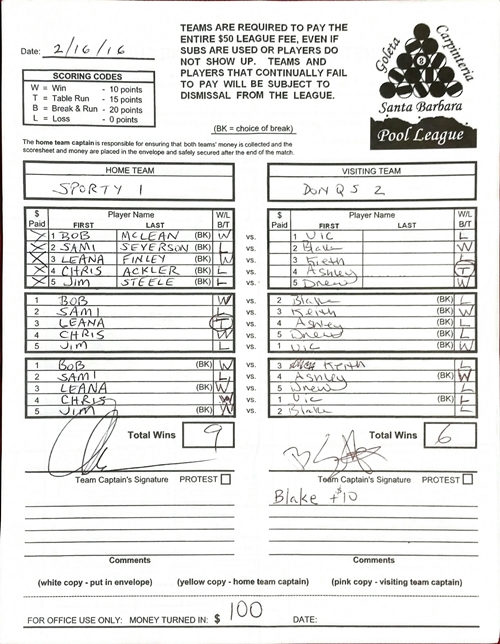 TEAMS ARE REQUIRED TO PAY THE
ENTIRE $50 LEAGUE FEE, EVEN IF
SUBS ARE USED OR PLAYERS DO
NOT SHOW UP. TEAMS AND
PLAYERS THAT CONTINUALLY FAIL
TO PAY WILL BE SUBJECT TO
DISMISSAL FROM THE LEAGUE.
Date: 2/16/16
SCORING CODES
W = Win - 10 points
T = Table Run - 15 points
B = Break & Run - 20 points
L = Loss - 0 points
(BK = choice of break)
Goleta
Carpinteria
8
Santa Barbara
Pool League
The home team captain is responsible for ensuring that both teams' money is collected and the
scoresheet and money are placed in the envelope and safely secured after the end of the match.
HOME TEAM VISITING TEAM
SPORTY 1 DON QS 2
$ Paid Player Name FIRST LAST W/L B/T $ Paid Player Name FIRST LAST W/L B/T
X 1 BOB McLEAN (BK) W vs. 1 Vic L
X 2 SAMI SEYERSON (BK) L vs. 2 Blake W
X 3 LEANA FINLEY (BK) W vs. 3 Keith L
X 4 CHRIS ACKLER (BK) L vs. 4 Ashley T
X 5 JIM STEELE (BK) L vs. 5 Drew W
1 BOB W vs. 2 Blake (BK) L
2 SAMI L vs. 3 Keith (BK) W
3 LEANA T vs. 4 Ashley (BK) L
4 CHRIS W vs. 5 Drew (BK) L
5 JIM L vs. 1 Vic (BK) W
1 BOB (BK) W vs. 3 Keith L
2 SAMI L vs. 4 Ashley (BK) W
3 LEANA (BK) W vs. 5 Drew L
4 CHRIS W vs. 1 Vic (BK) L
5 JIM (BK) W vs. 2 Blake L
Total Wins 9 Total Wins 6
Team Captain's Signature PROTEST Team Captain's Signature PROTEST
Blake +$10
Comments Comments
(white copy - put in envelope) (yellow copy - home team captain) (pink copy - visiting team captain)
FOR OFFICE USE ONLY: MONEY TURNED IN: $ 100 DATE: